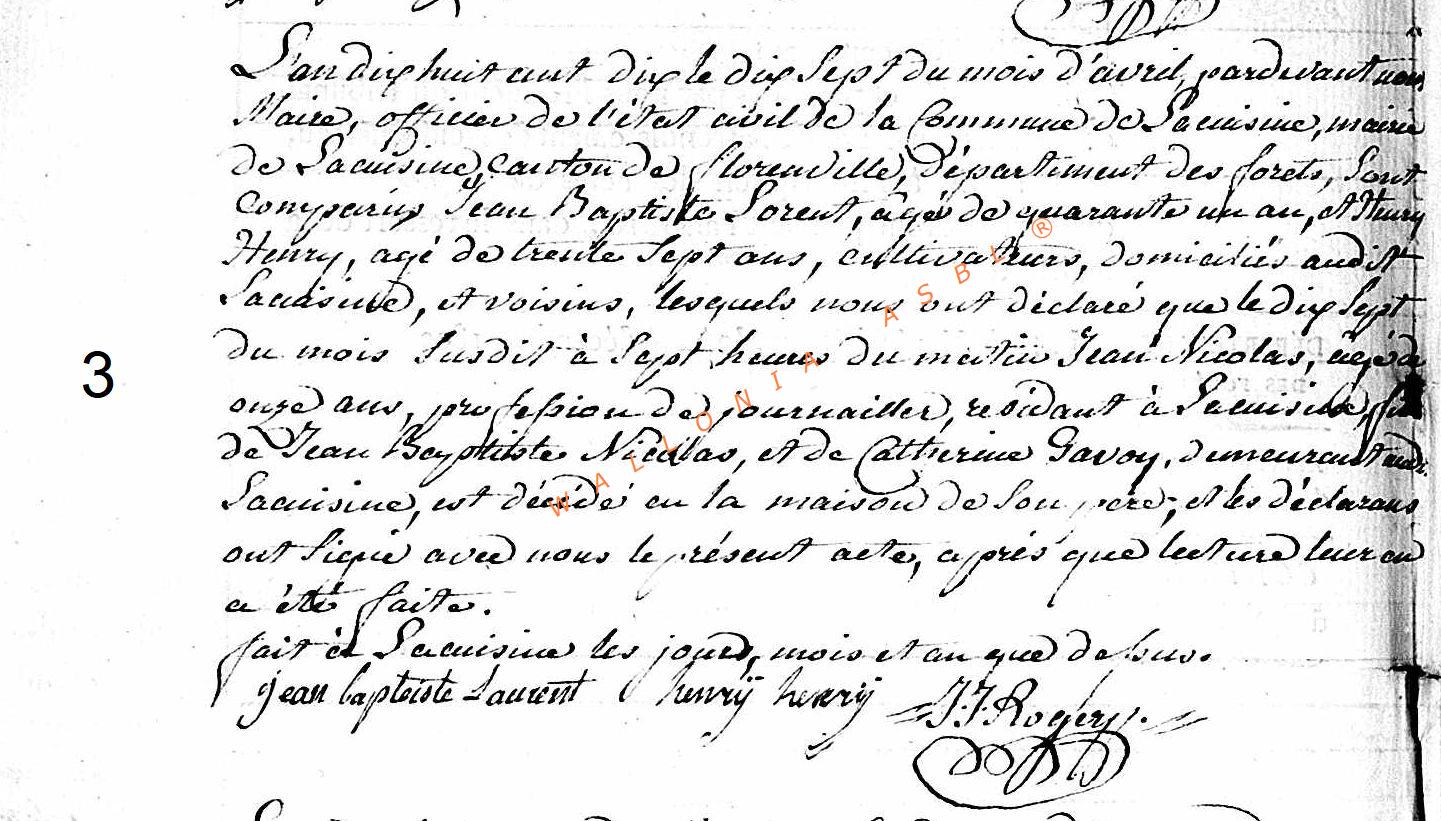 L'an dix huit cent dix le dix Sept du mois d'avril, pardevant nous
Maire, officier de l'état civil de la Commune de Lacuisine, mairie
de Lacuisine, Canton de florenville, Département des forets, Sont
Comparus Jean Baptiste Lorent, âgé de quarante un an, et Henry
Henry, agé de trente Sept ans, cultivateurs, domiciliés audit
Lacuisine, et voisins, lesquels nous ont déclaré que le dix Sept
du mois Susdit à Sept heures du matin Jean Nicolas, agé de
3
onze ans, profession de journaillier, residant à Lacuisine, fils
de Jean Baptiste Nicolas, et de Catherine Gavoy, demeurant
Lacuisine, est décédé en la maison de Son père, et les déclarans
ont Signé avec nous le présent acte, après que lecture leur en
a été faite.
fait à Lacuisine les jour, mois et an que dessus.
jean bapteiste Laurent henrÿ henrÿ J.J. Rogery.
WALLONIA ASBL ®